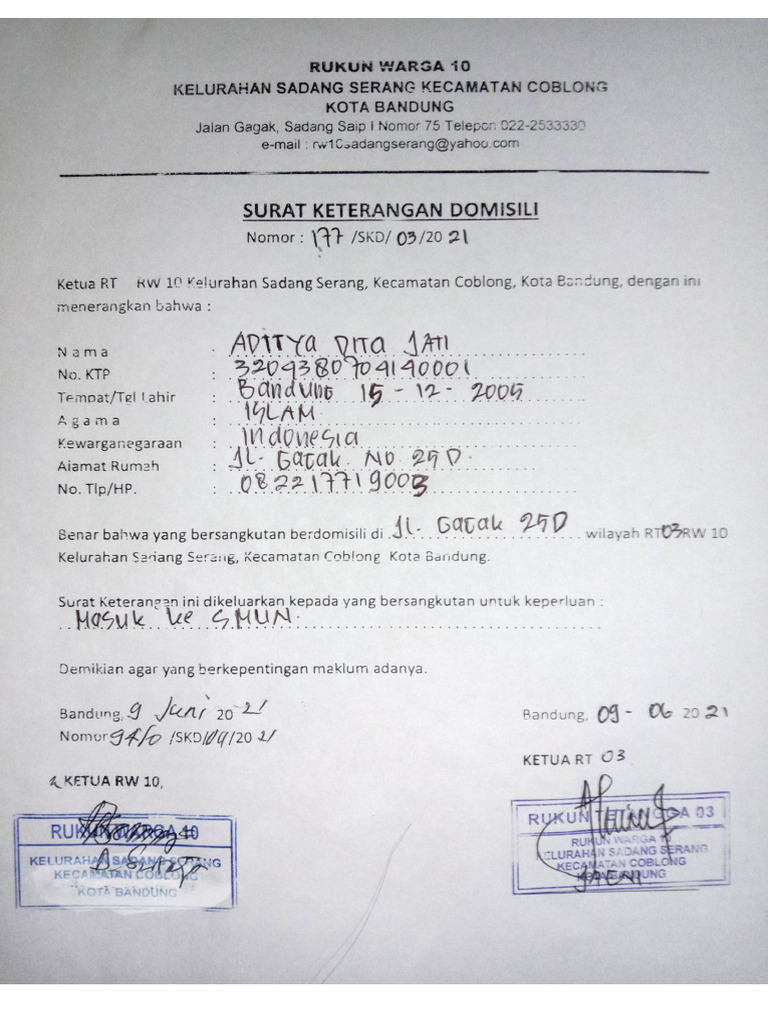 RUKUN WARGA 10
KELURAHAN SADANG SERANG KECAMATAN COBLONG
KOTA BANDUNG
Jalan Gagak, Sadang Saip I Nomor 75 Telepon 022-2533330
e-mail : rw10sadangserang@yahoo.com
SURAT KETERANGAN DOMISILI
Nomor : 177 /SKD/ 03/20 21
Ketua RT RW 10 Kelurahan Sadang Serang, Kecamatan Coblong, Kota Bandung, dengan ini
menerangkan bahwa :
N a m a : ADITYA DITA JATI
No. KTP : 3204380704140001
Tempat/Tgl Lahir : Bandung 15 - 12 - 2005
A g a m a : ISLAM
Kewarganegaraan : Indonesia
Alamat Rumah : JL. Gagak No 25D.
No. Tlp/HP. : 082217719003
Benar bahwa yang bersangkutan berdomisili di Jl. Gagak 25D wilayah RT 03 RW 10
Kelurahan Sadang Serang, Kecamatan Coblong Kota Bandung.
Surat Keterangan ini dikeluarkan kepada yang bersangkutan untuk keperluan :
Masuk ke SMUN.
Demikian agar yang berkepentingan maklum adanya.
Bandung, 9 Juni 20 21
Nomor /SKD/ /20 21
KETUA RW 10,
RUKUN WARGA 10
KELURAHAN SADANG SERANG
KECAMATAN COBLONG
KOTA BANDUNG
Bandung, 09 - 06 20 21
KETUA RT 03
RUKUN TETANGGA 03
RUKUN WARGA
KELURAHAN SADANG SERANG
KECAMATAN COBLONG
KOTA BANDUNG